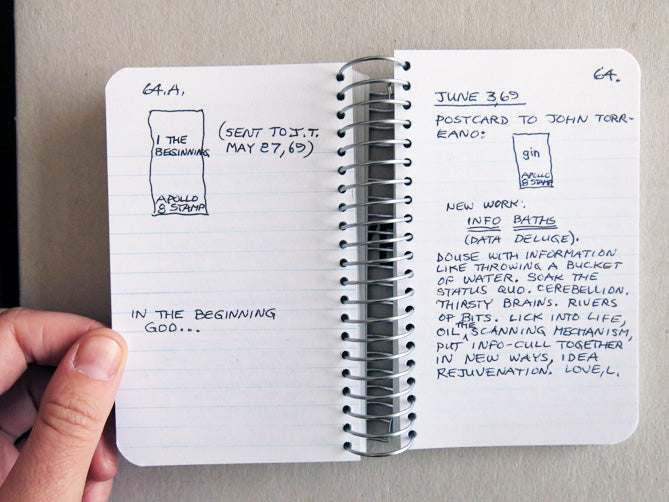 64.A.
1 THE
BEGINNING
APOLLO
8 STAMP
(SENT TO J.T.
MAY 27, 69)
IN THE BEGINNING
GOD...
64.
JUNE 3, 69
POSTCARD TO JOHN TORR-
EANO:
gin
APOLLO
8 STAMP
NEW WORK:
INFO BATHS
(DATA DELUGE).
DOUSE WITH INFORMATION
LIKE THROWING A BUCKET
OF WATER. SOAK THE
STATUS QUO. CEREBELLION.
THIRSTY BRAINS. RIVERS
OF BITS. LICK INTO LIFE,
OIL THE SCANNING MECHANISM,
PUT INFO-CULL TOGETHER
IN NEW WAYS, IDEA
REJUVENATION. LOVE, L.